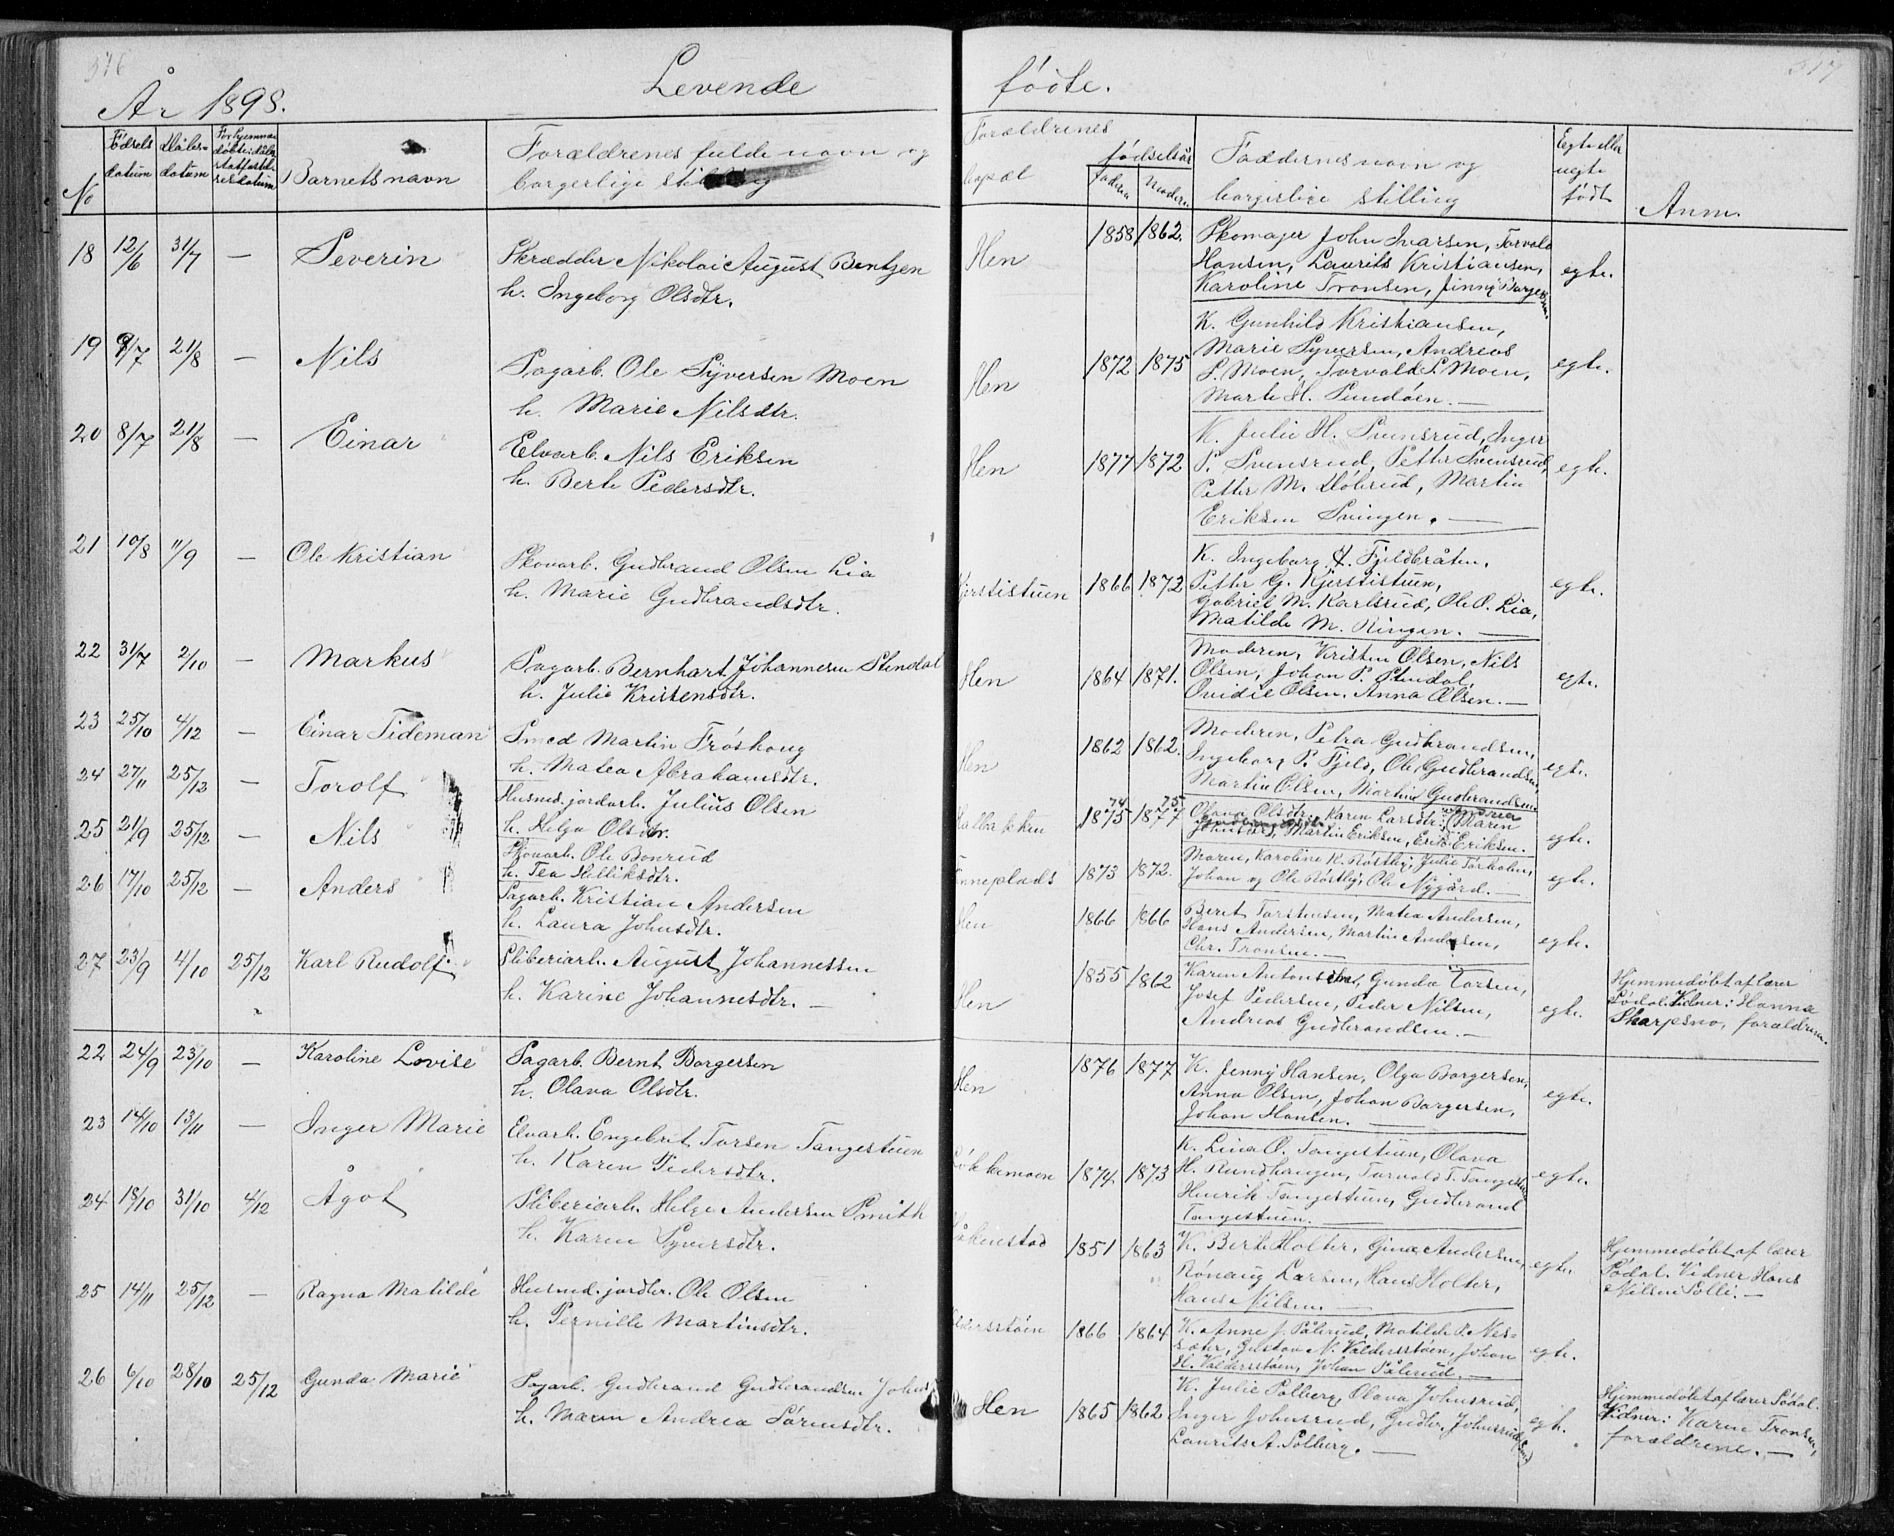 576
År 1898.
Levende
No
Fødsels
datum
Daabs-
datum
Barnets navn
Forældrenes fulde navn og
borgerlige stilling
18 12/6 31/7 — Severin
Skrædder Nikolai August Bentzen
h. Ingeborg Olsdtr.
19 9/7 21/8 — Nils
Sagarb. Ole Syversen Moen
h. Marie Nilsdtr.
20 8/7 21/8 — Einar
Elvarb. Nils Eriksen
h. Berte Pedersdtr.
21 10/8 11/9 — Ole Kristian
Skovarb. Gudbrand Olsen Lia
h. Marie Gudbrandsdtr.
22 31/7 2/10 — Markus
Sagarb. Bernhart Johannesen Stendal
h. Julie Kristensdtr.
23 25/10 4/12 — Einar Tideman
Smed Martin Frøshoug
h. Matea Abrahamsdtr.
24 27/11 25/12 — Torolf
Husmd. jordarb. Julius Olsen
h. Helga Olsdtr.
25 21/9 25/12 — Nils
Skovarb. Ole Bonrud
h. Tea
26 17/10 25/12 — Anders
Sagarb. Kristian Andersen
h. Laura Johnsdtr.
27 23/9 4/10 25/12 Karl Rudolf
Sliberiarb. August Johannessen
h. Karine Johannesdtr. —
22 24/9 23/10 — Karoline Lovise
Sagarb. Bernt Borgersen
h. Olava Olsdtr.
23 14/10 13/11 — Inger Marie
Elvarb. Engebret Torsen Tangestuen
h. Karen Pedersdtr.
24 18/10 31/10 4/12 Ågot
Sliberiarb. Helge Andersen Smith
h. Karen Syversdtr.
25 14/11 25/12 — Ragna Matilde
Husmd. jordbr. Ole Olsen
h. Pernille Martinsdtr.
26 6/10 28/10 25/12 Gunda Marie
Sagarb. Gudbrand Gudbrandsen Johns
h. Maren Andrea Sørensdtr.
517
fødte.
Forældrenes
bopæl
fødselsår
Faderen
Moderen
Faddernes navn og
borgerlige stilling
Egte eller
uegte
født
Anm.
Hen 1858 1862.
Skomager John Ivarsen, Torvald
Hansen, Laurits Kristiansen,
Karoline Tronsen, Jinny Borgersen.
egte.
Hen 1872 1875
K. Gunhild Kristiansen,
Marie Syversen, Andreas
S. Moen, Torvald S. Moen,
Marte H. Sundøen. —
egte.
Hen 1877 1872
K. Julie H. Svensrud, Inger
P. Svensrud, Petter Svensrud,
Petter M. Døhrud, Martin
Eriksen Svingen. —
egte.
Kjerstistuen 1866 1872
K. Ingeborg J. Fjeldbråten,
Petter G. Kjerstistuen,
Gabriel M. Karlsrud, Ole O. Lia,
Matilde M. Ringen. —
egte.
Hen 1864 1871.
Moderen, Kristen Olsen, Nils
Olsen, Johan P. Stendal,
Ovidie Olsen, Anna Olsen. —
egte.
Hen 1862 1862.
Moderen, Petra Gudbrandsen,
Ingeborg P. Fjeld, Ole Gudbrandsen,
Martin Olsen, Martin Gudbrandsen
egte.
74 75
1875 1877
Olava Olsdtr., Karen Larsdtr., Maren
Johnsdtr., Martin Eriksen, Erik Eriksen.
egte.
Finneplads 1873 1872.
Maren, Karoline K. Røstby, Julie Torholm,
Johan og Ole Røstby, Ole Nygård. —
egte.
Hen 1866 1866
Berit Torstensen, Matea Andersen,
Hans Andersen, Martin Andersen,
Chr. Tronsen. —
egte.
Hen 1855 1862
Karen Antonsdtr, Gunda Torsen,
Josef Pedersen, Peder Nilsen,
Andreas Gudbrandsen. —
egte.
Hjemmedøbt af lærer
Sødal. Vidner: Hanna
Skarpsno, forældrene.
Hen 1876 1877
K. Jenny Hansen, Olga Borgersen,
Anna Olsen, Johan Borgersen,
Johan Hansen. —
egte.
Løkkemoen 1874. 1873
K. Lina O. Tangestuen, Olava
H. Rundhaugen, Torvald T. Tangestuen
Henrik Tangestuen, Gudbrand
Tangestuen. —
egte.
1851 1863
K. Berte Holter, Gina Andersen,
Rønaug Larsen, Hans Holter,
Hans Nilsen. —
egte.
Hjemmedøbt af lærer
Sødal. Vidner Hans
Nilsen Solli. —
Valdersstøen 1866 1864
K. Anne J. Pålerud, Matilde P. Nes-
sæter, Gustav N. Valdersstøen, Johan
H. Valdersstøen, Johan Pålerud. —
egte.
Hen 1865 1862
K. Julie Solberg, Olava Johnsrud,
Inger Johnsrud, Gudbr. Johnsrud,
Laurits A. Solberg. —
egte.
Hjemmedøbt af lærer Sødal.
Vidner: Karen Tronsen,
forældrene. —